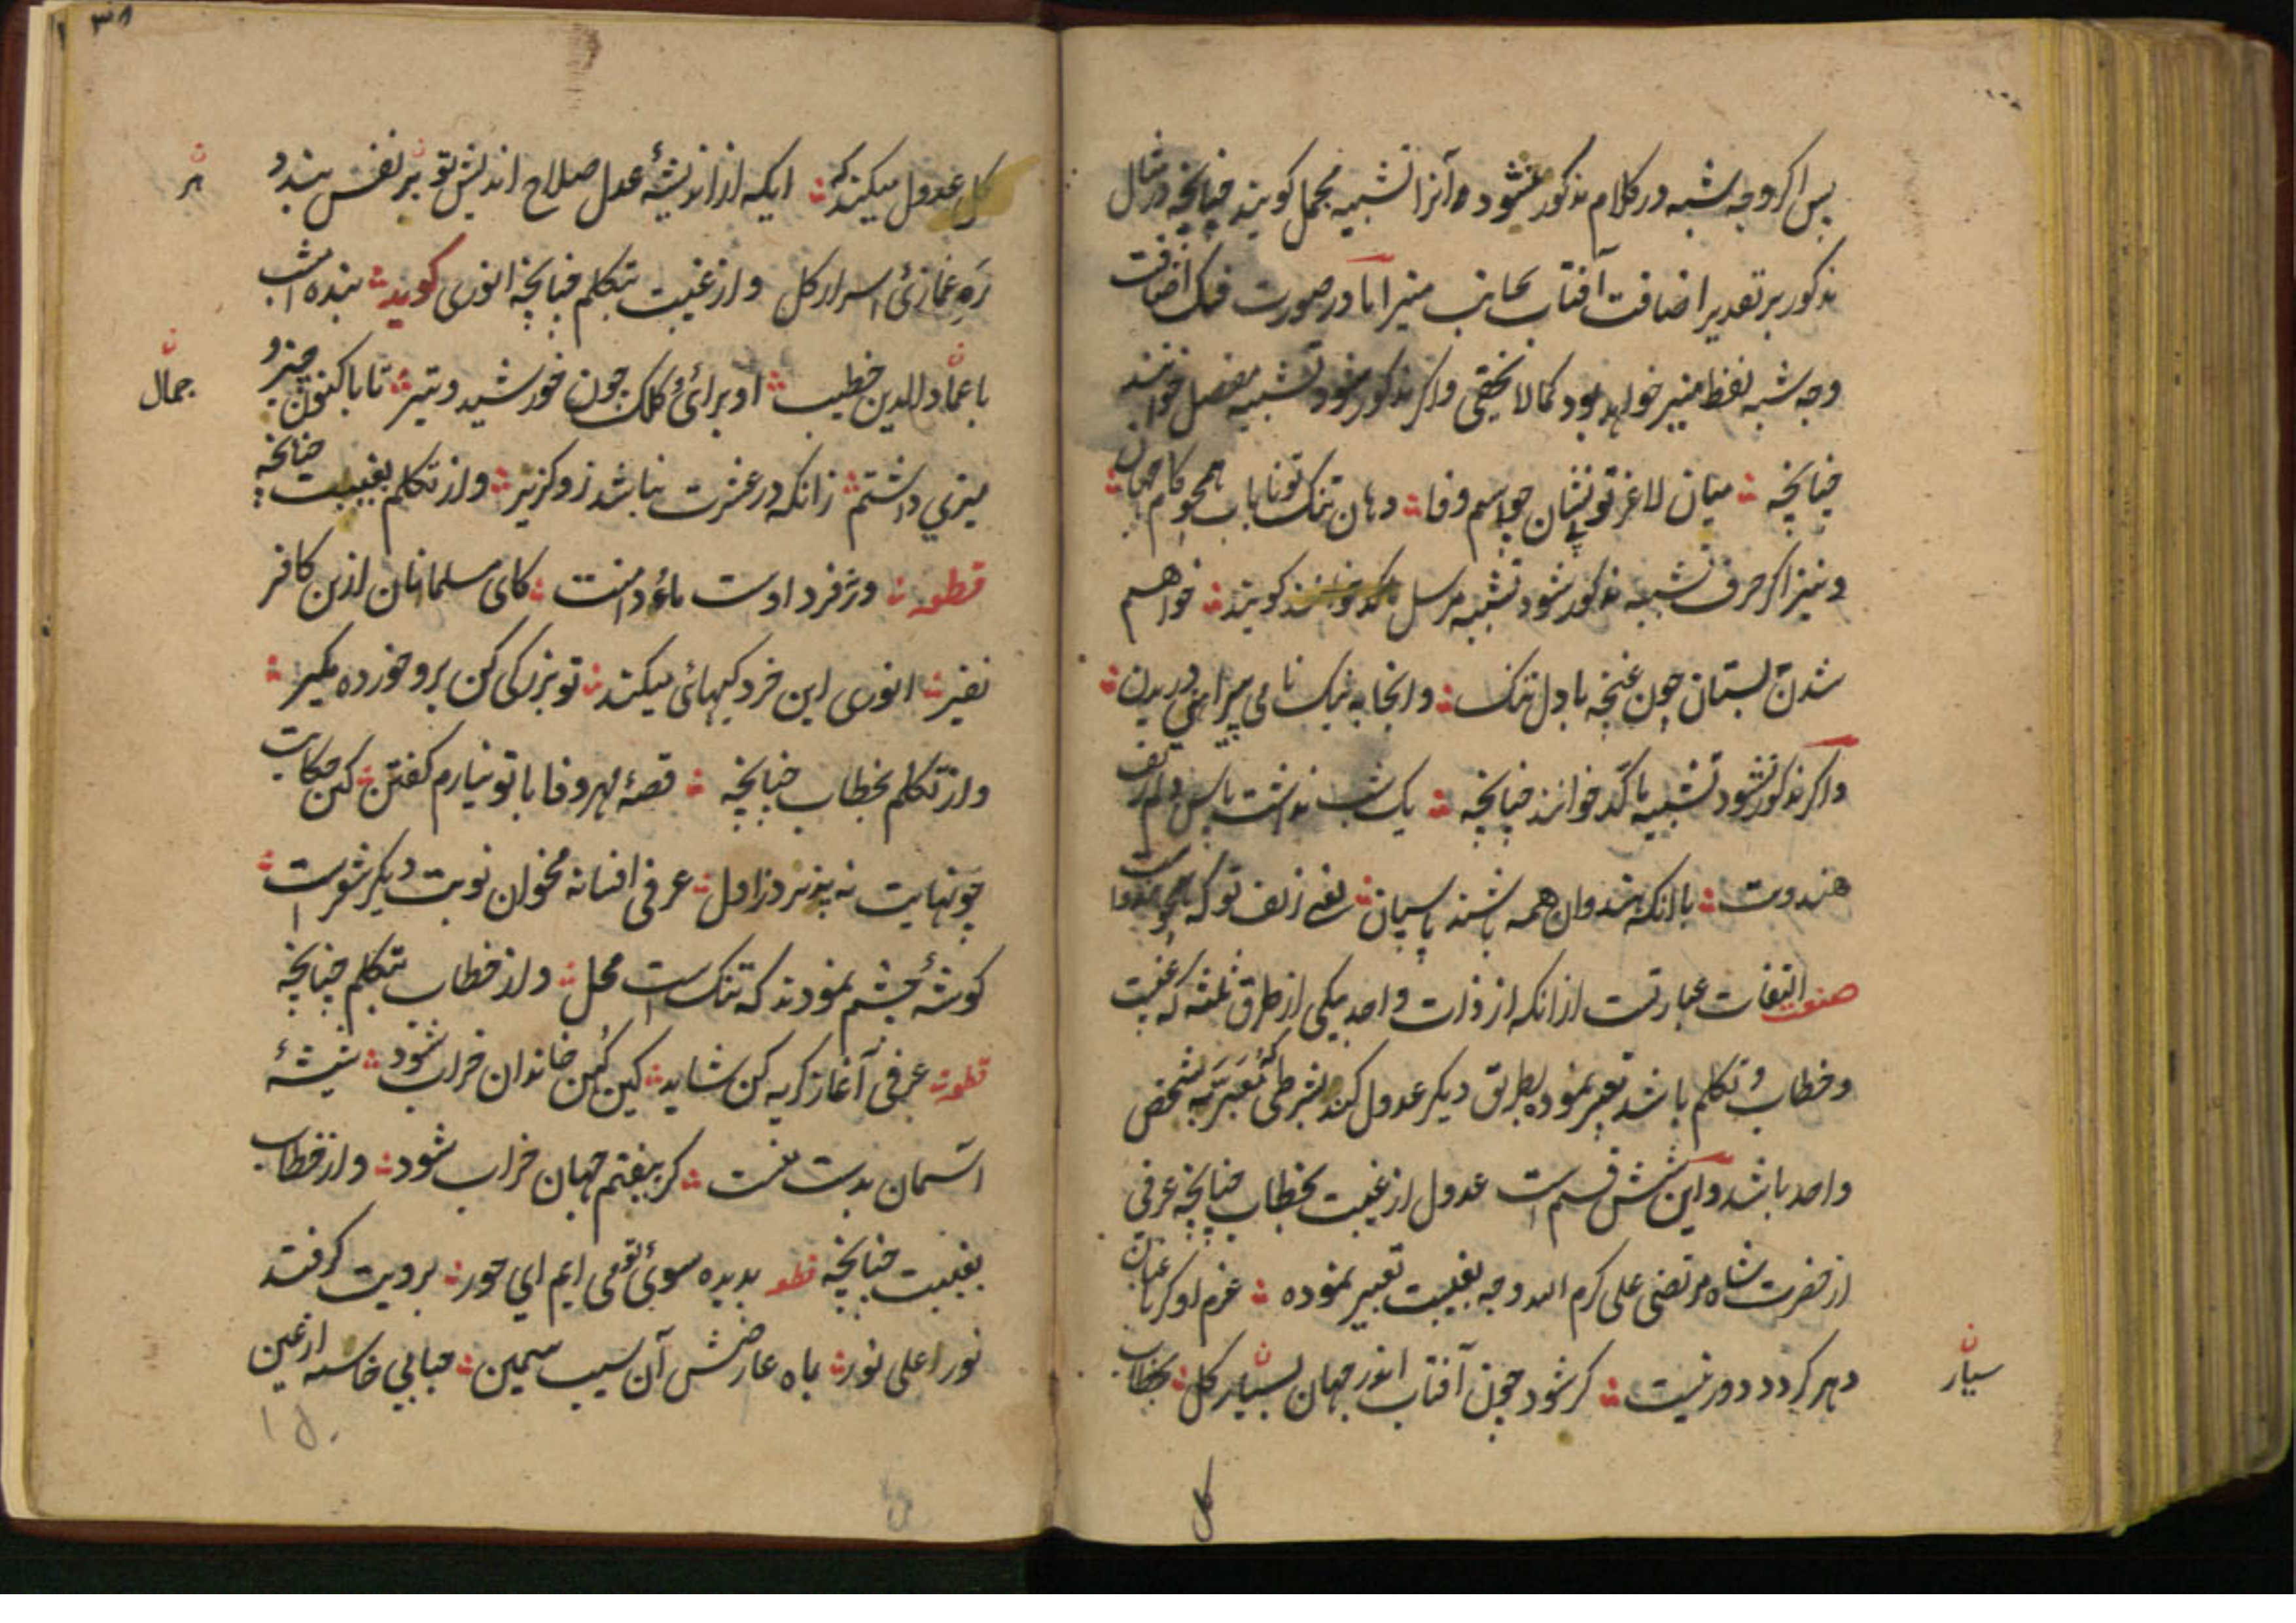 پس اگر وجه شبه در کلام مذکور نشود آنرا تشبیه مجمل کویند چنانچه در مثال
مذکور بر تقدیر اضافت آفتاب بجانب منیر اما در صورت فک اضافت
وجه شبه لفظ منیر خواهد بود کمالا یخفی و اکر مذکور شود تشبیه مفصل خوانند
چنانچه میان لاغر تو بی نشان چو اسم وفا دهان تنک تو نایاب همچو کام جهان
و نیز اکر حرف تشبیه مذکور شود تشبیه مرسل کویند خواهم
شدن بستان چون غنچه با دل تنک وانجا به نیک نامی پیراهنی دریدن
و اکر مذکور نشود تشبیه مأکد خوانند چنانچه یک شب نداشت پاس دلم زلف
هندوت با آنکه هندوان همه باشند پاسبان یعنی زلف تو که همچو هندوا ست
صنعت التفات عبارتست از انکه از ذات واحد بیکی از طرق ثلثه که غیبت
و خطاب و تکلم باشد تعبیر نموده بطریق دیکر عدول کنند بشرطی که معبر به شخص
واحد باشد و این شش قسم است عدول از غیبت بخطاب چنانچه عرفی
از حضرت شاه مرتضی علی کرم الله وجه بغیبت تعبیر نموده عزم او کر عنان
دهر کردد دور نیست کر شود چون آفتاب انور جهان بسیار کل بخطاب
سیار
کل
کل عدول میکند که ایکه از اندیشهٔ عدل صلاح اندیش تو بر نفس بندد
ره غمازیٔ اسرار کل و از غیبت بتکلم چنانچه انوری کوید بنده امشب
با عماد الدین خطیب او برائ کلک چون خورشید و تیر تا باکنون چیز و
میزی داشتم زانکه در عشرت نباشد زو کزیر و از تکلم بغیبت چنانچه
قطعه
نفیر انوری این خردکیهائ میکند تو بزرکی کن برو خورده مکیر
و از تکلم بخطاب چنانچه قصهٔ مهر و وفا با تو نیارم کفتن کین حکایت
چو نهایت نه پذیرد ز اول عرفی افسانه مخوان نوبت دیکر شعر است
کوشهٔ چشم نمودند که تنک است محل و از خطاب بتکلم چنانچه
قطعه عرفی آغاز کریه کن شاید کین کهن خاندان خراب شود شیشهٔ
آسمان بدست منست کر بیفتم جهان خراب شود و از خطاب
بغیبت چنانچه قطعه بدیده سوئ تو می ایم ای حور برویت کرفتند
نورا علی نور بماه عارضش آن سیب سیمین حبابی خاسته از عین
بر
جمال